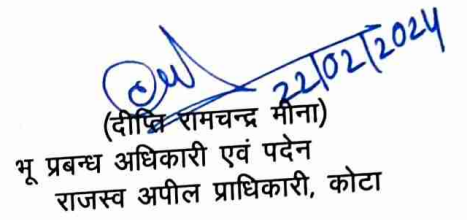 22/02/2024
(दीप्ति रामचन्द्र मीना)
भू प्रबन्ध अधिकारी एवं पदेन
राजस्व अपील प्राधिकारी, कोटा